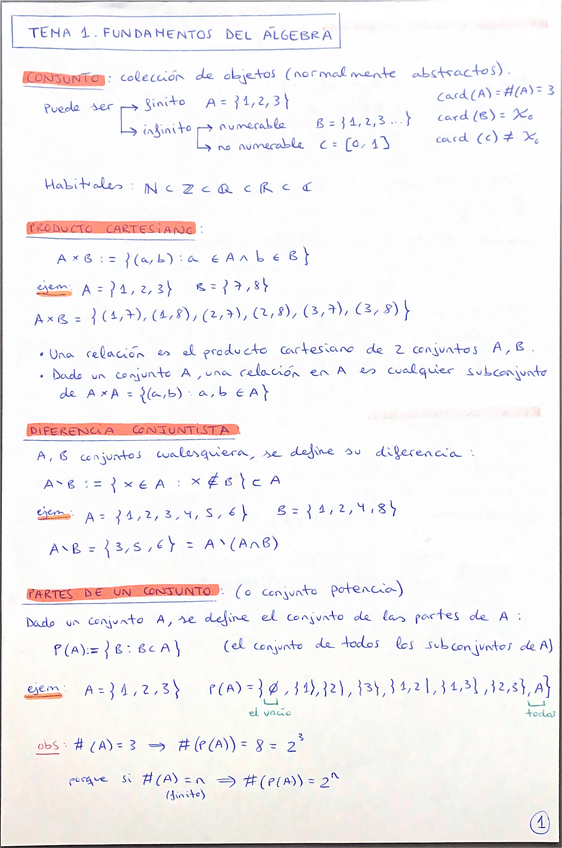 TEMA 1. FUNDAMENTOS DEL ÁLGEBRA
CONJUNTO: colección de objetos (normalmente abstractos).
Puede ser → finito A = {1,2,3} card(A) = #(A) = 3
→ infinito → numerable B = {1,2,3...} card(B) = ℵ₀
→ no numerable C = [0,1] card(C) ≠ ℵ₀
Habituales: ℕ ⊂ ℤ ⊂ ℚ ⊂ ℝ ⊂ ℂ
PRODUCTO CARTESIANO:
A × B := {(a,b) : a ∈ A ∧ b ∈ B}
ejem: A = {1,2,3} B = {7,8}
A×B = {(1,7), (1,8), (2,7), (2,8), (3,7), (3,8)}
• Una relación es el producto cartesiano de 2 conjuntos A, B.
• Dado un conjunto A, una relación en A es cualquier subconjunto
de A×A = {(a,b) : a,b ∈ A}
DIFERENCIA CONJUNTISTA:
A, B conjuntos cualesquiera, se define su diferencia:
A∖B := {x ∈ A : x ∉ B} ⊂ A
ejem: A = {1,2,3,4,5,6} B = {1,2,4,8}
A∖B = {3,5,6} = A∖(A∩B)
PARTES DE UN CONJUNTO: (o conjunto potencia)
Dado un conjunto A, se define el conjunto de las partes de A:
P(A) := {B : B⊂A} (el conjunto de todos los subconjuntos de A)
ejem: A = {1,2,3} P(A) = {∅, {1}, {2}, {3}, {1,2}, {1,3}, {2,3}, A}
el vacío todos
obs: #(A) = 3 ⟹ #(P(A)) = 8 = 2³
porque si #(A) = n ⟹ #(P(A)) = 2ⁿ
(finito)
1